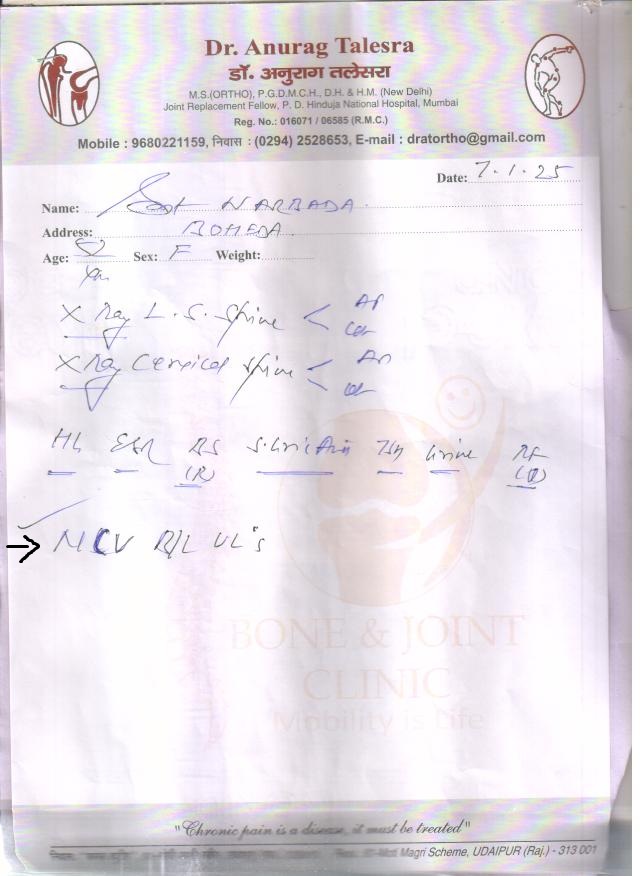 Dr. Anurag Talesra
डॉ. अनुराग तलेसरा
M.S.(ORTHO), P.G.D.M.C.H., D.H. & H.M. (New Delhi)
Joint Replacement Fellow, P. D. Hinduja National Hospital, Mumbai
Reg. No.: 016071 / 06585 (R.M.C.)
Mobile : 9680221159, निवास : (0294) 2528653, E-mail : dratortho@gmail.com
Date: 7.1.25
Name: NARBADA
Address: BOHEDA
Age: Sex: F Weight:
X Ray L. S. Spine < AP
X Ray Cervical Spine <
ESR Urine
(R)
NCV R/L UL's
BONE & JOINT
CLINIC
Mobility is Life
"Chronic pain is a disease, it must be treated"
Moti Magri Scheme, UDAIPUR (Raj.) - 313 001